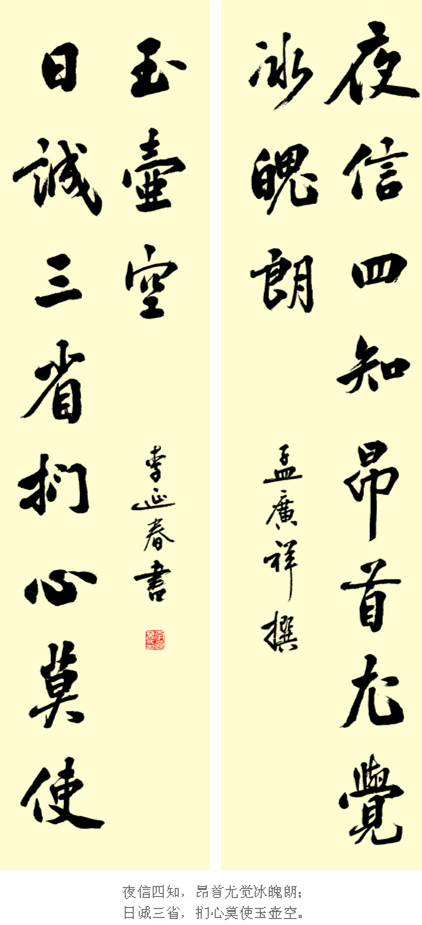 夜信四知昂首尤覺
冰魄朗
孟廣祥撰
日誠三省捫心莫使
玉壺空
李延春書
夜信四知，昂首尤觉冰魄朗；
日诚三省，扪心莫使玉壶空。